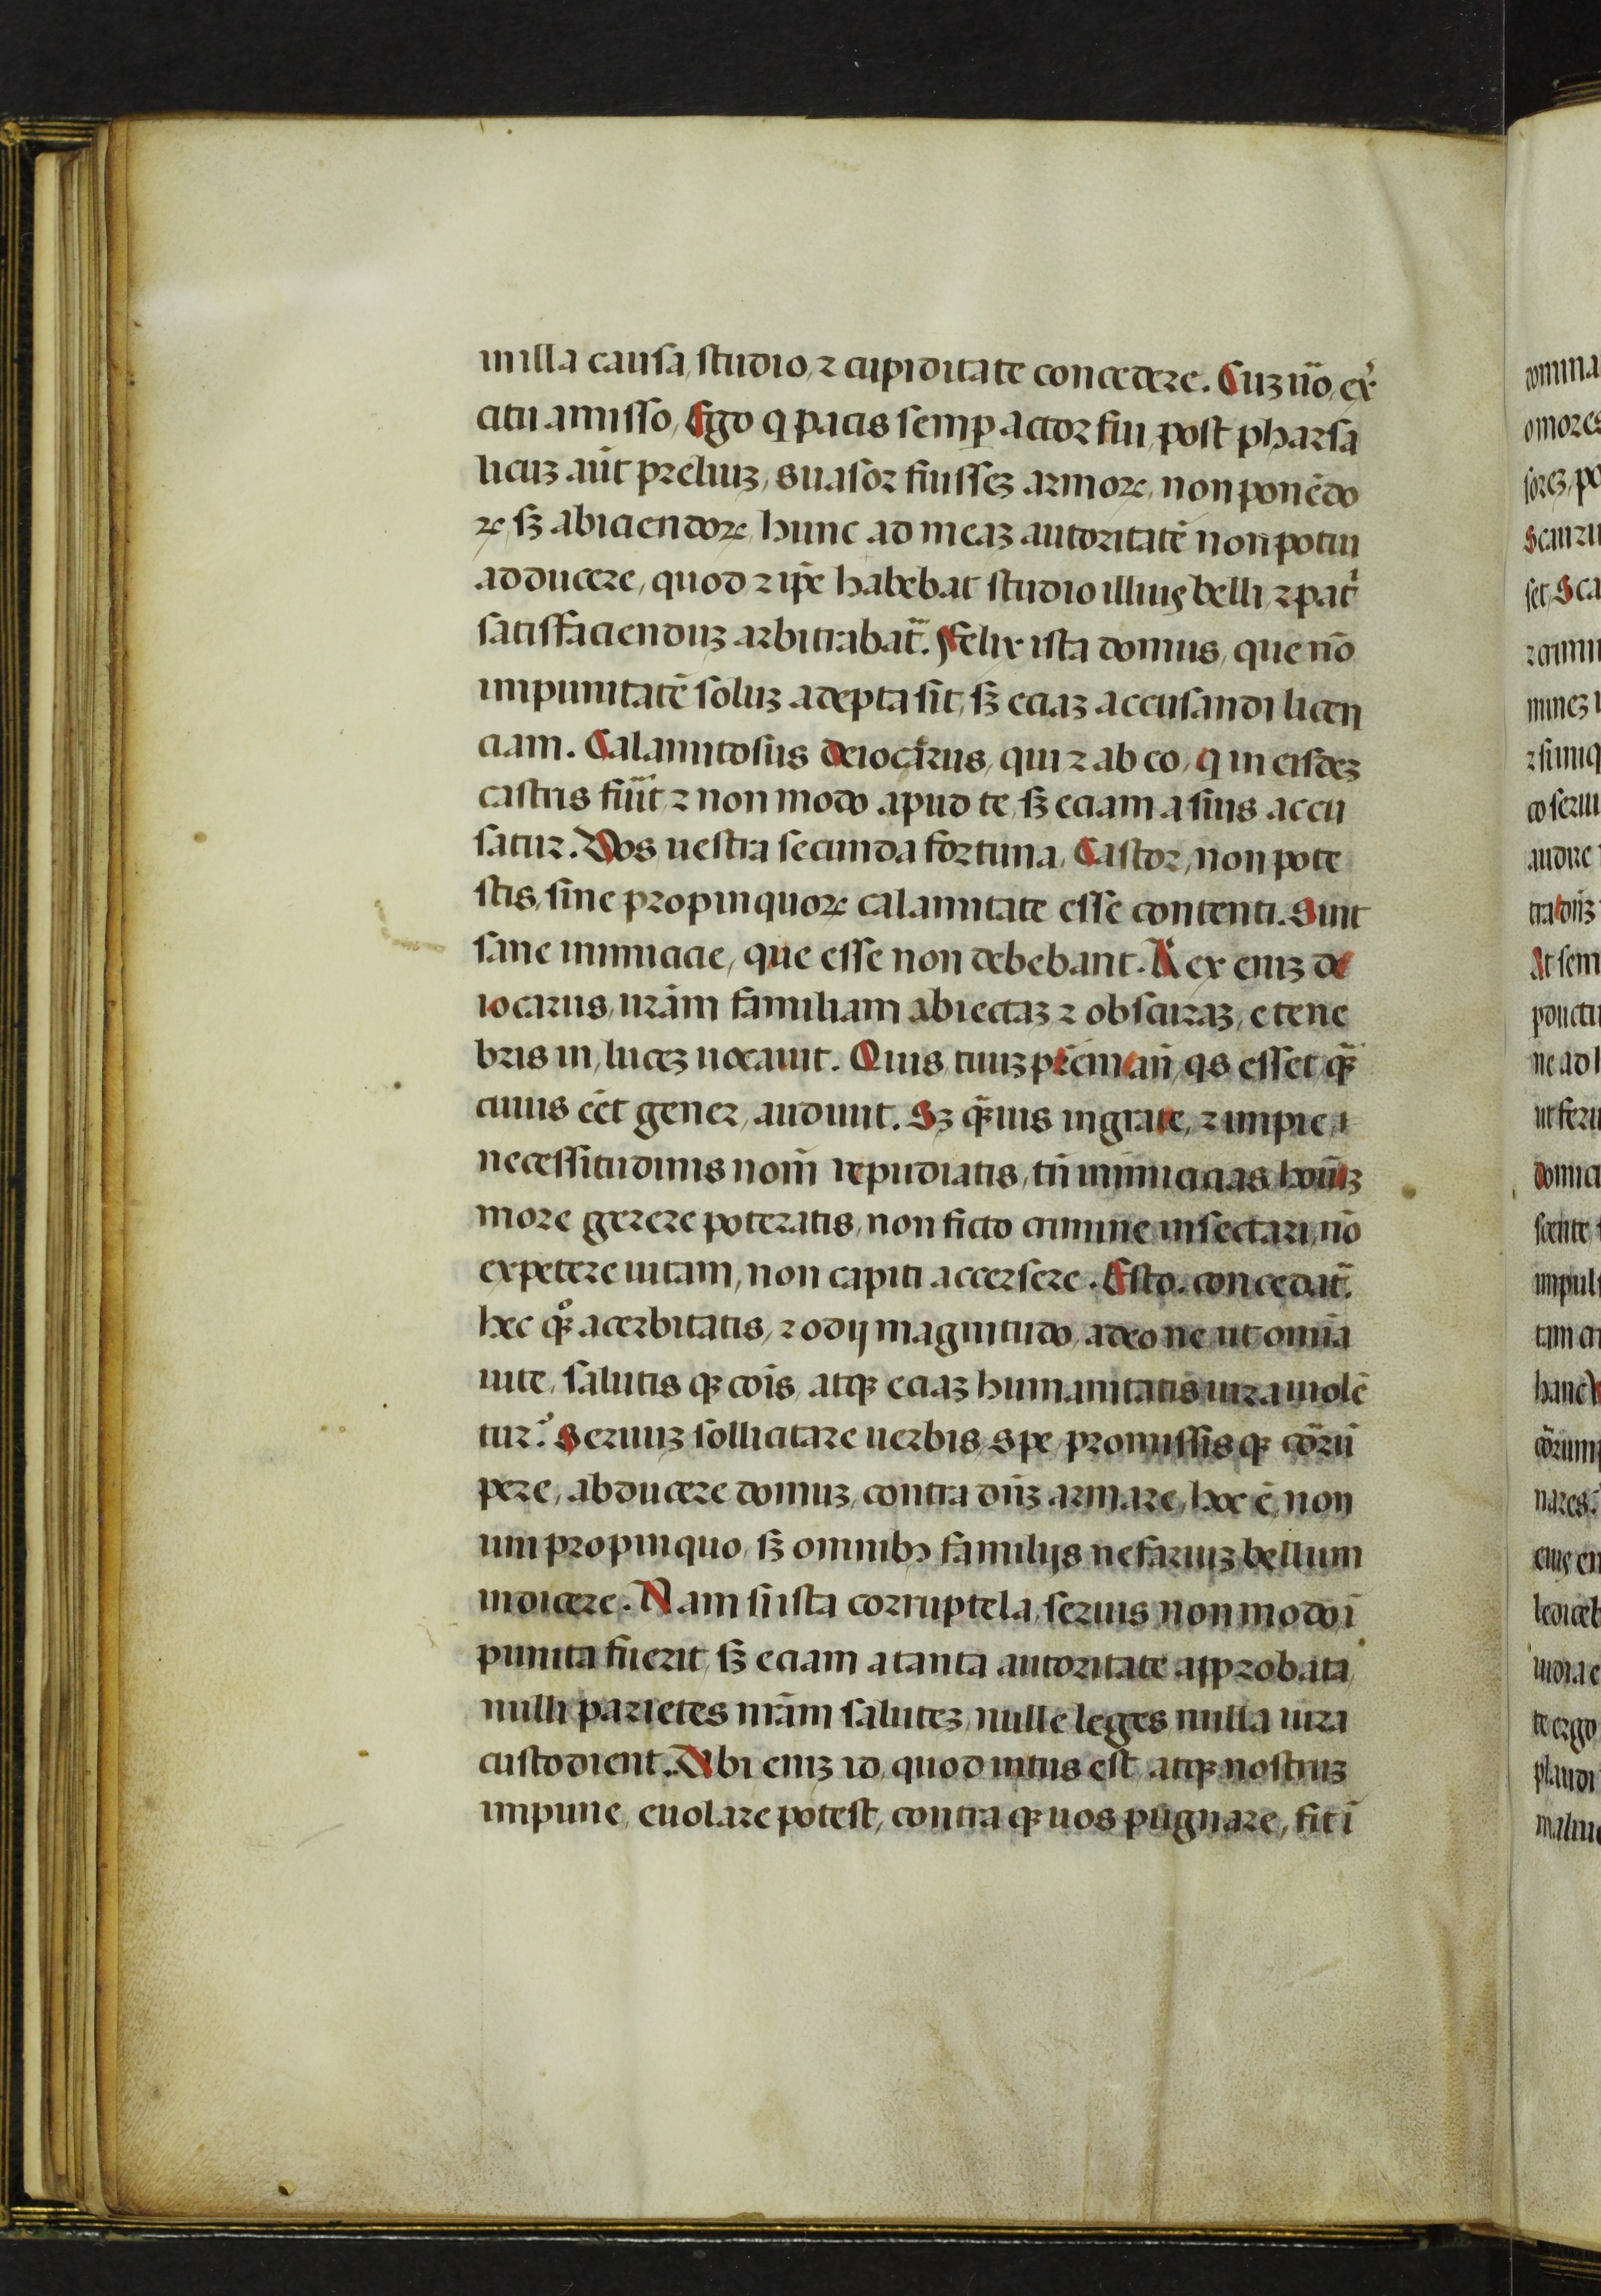 in illa causa, studio, ⁊ cupiditate concedere. Cuꝫ ũo, ex̉
citu amisso, Ego q pacis semꝑ actor fui, post pharsa
licuꝫ aũt preliuꝫ, suasor fuisseꝫ armoꝝ, non ponẽdo
ꝝ, sꝫ abiciendoꝝ, hunc ad meaꝫ autoritatẽ non potui
adducere, quod ⁊ ip̃e habebat studio illiꝰ belli, ⁊ pat̉
satisfacienduꝫ arbitrabat̃. Felix ista domus, que nõ
impunitatẽ soluꝫ adepta sit, sꝫ eciaꝫ accusandi licen
ciam. Calamitosus deiocarus, qui ⁊ ab eo, q in eisdeꝫ
castris fuit̃ ⁊ non modo apud te, sꝫ eciam a suis accu
satur. Vos uestra secunda fortuna, Castor, non pote
stis, sine propinquoꝝ calamitate esse contenti. Sint
sane inimicicie, que esse non debebant. Rex eniꝫ de
iocarus, ur̃am familiam abiectaꝫ ⁊ obscuraꝫ, e tene
bris in, luceꝫ uocauit. Quis, tuuꝫ pr̃em an̄, qs esset, qꝫ̃
cuius eẽt gener, audiuit. Sꝫ qꝫ̃uis ingrate, ⁊ impie,
necessitudinis nom̃ repudiatis, tñ inimicicias hoĩuꝫ
more gerere poteratis, non ficto crimine insectari, nõ
expetere uitam, non capiti accersere. Esto. concedat̃.
hec qꝫ̊ acerbitatis, ⁊ odij magnitudo, adeo ne ut omĩa
uite, salutis qꝫ cõis, atqꝫ eciaꝫ humanitatis iura uiolẽ
tur.̉ Seruuꝫ sollicitare uerbis, spe, promissis qꝫ cõrũ
pere, abducere domuꝫ, contra dñꝫ armare, hoc ẽ, non
uni propinquo, sꝫ omnibꝰ familijs nefariuꝫ bellum
indicere. Nam si ista corruptela, seruis non modo ĩ
punita fuerit, sꝫ eciam a tanta autoritate approbata
nulli parietes nr̃am saluteꝫ, nulle leges, nulla iura
custodient. Vbi eniꝫ id, quod intus est, atqꝫ nostruꝫ
impune, euolare potest, contra qꝫ uos pugnare, fit ĩ